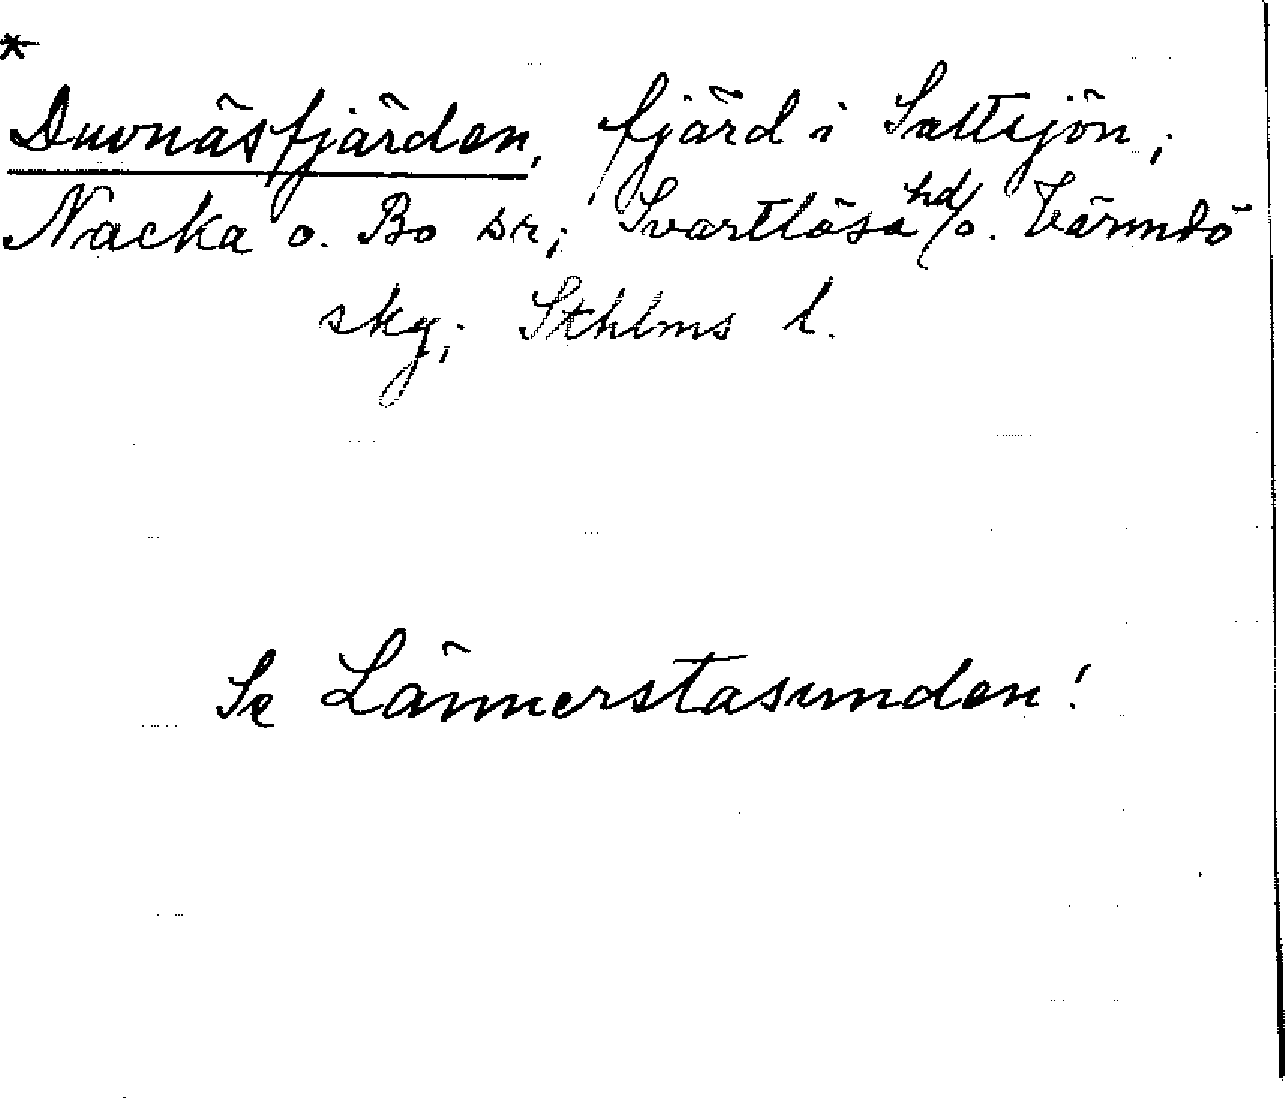 *
Duvnäsfjärden, fjärd i Saltsjön;
Nacka o. Bo sn; Svartlösa hd o. Värmdö
skg; Sthlms l.
Se Lännerstasunden!